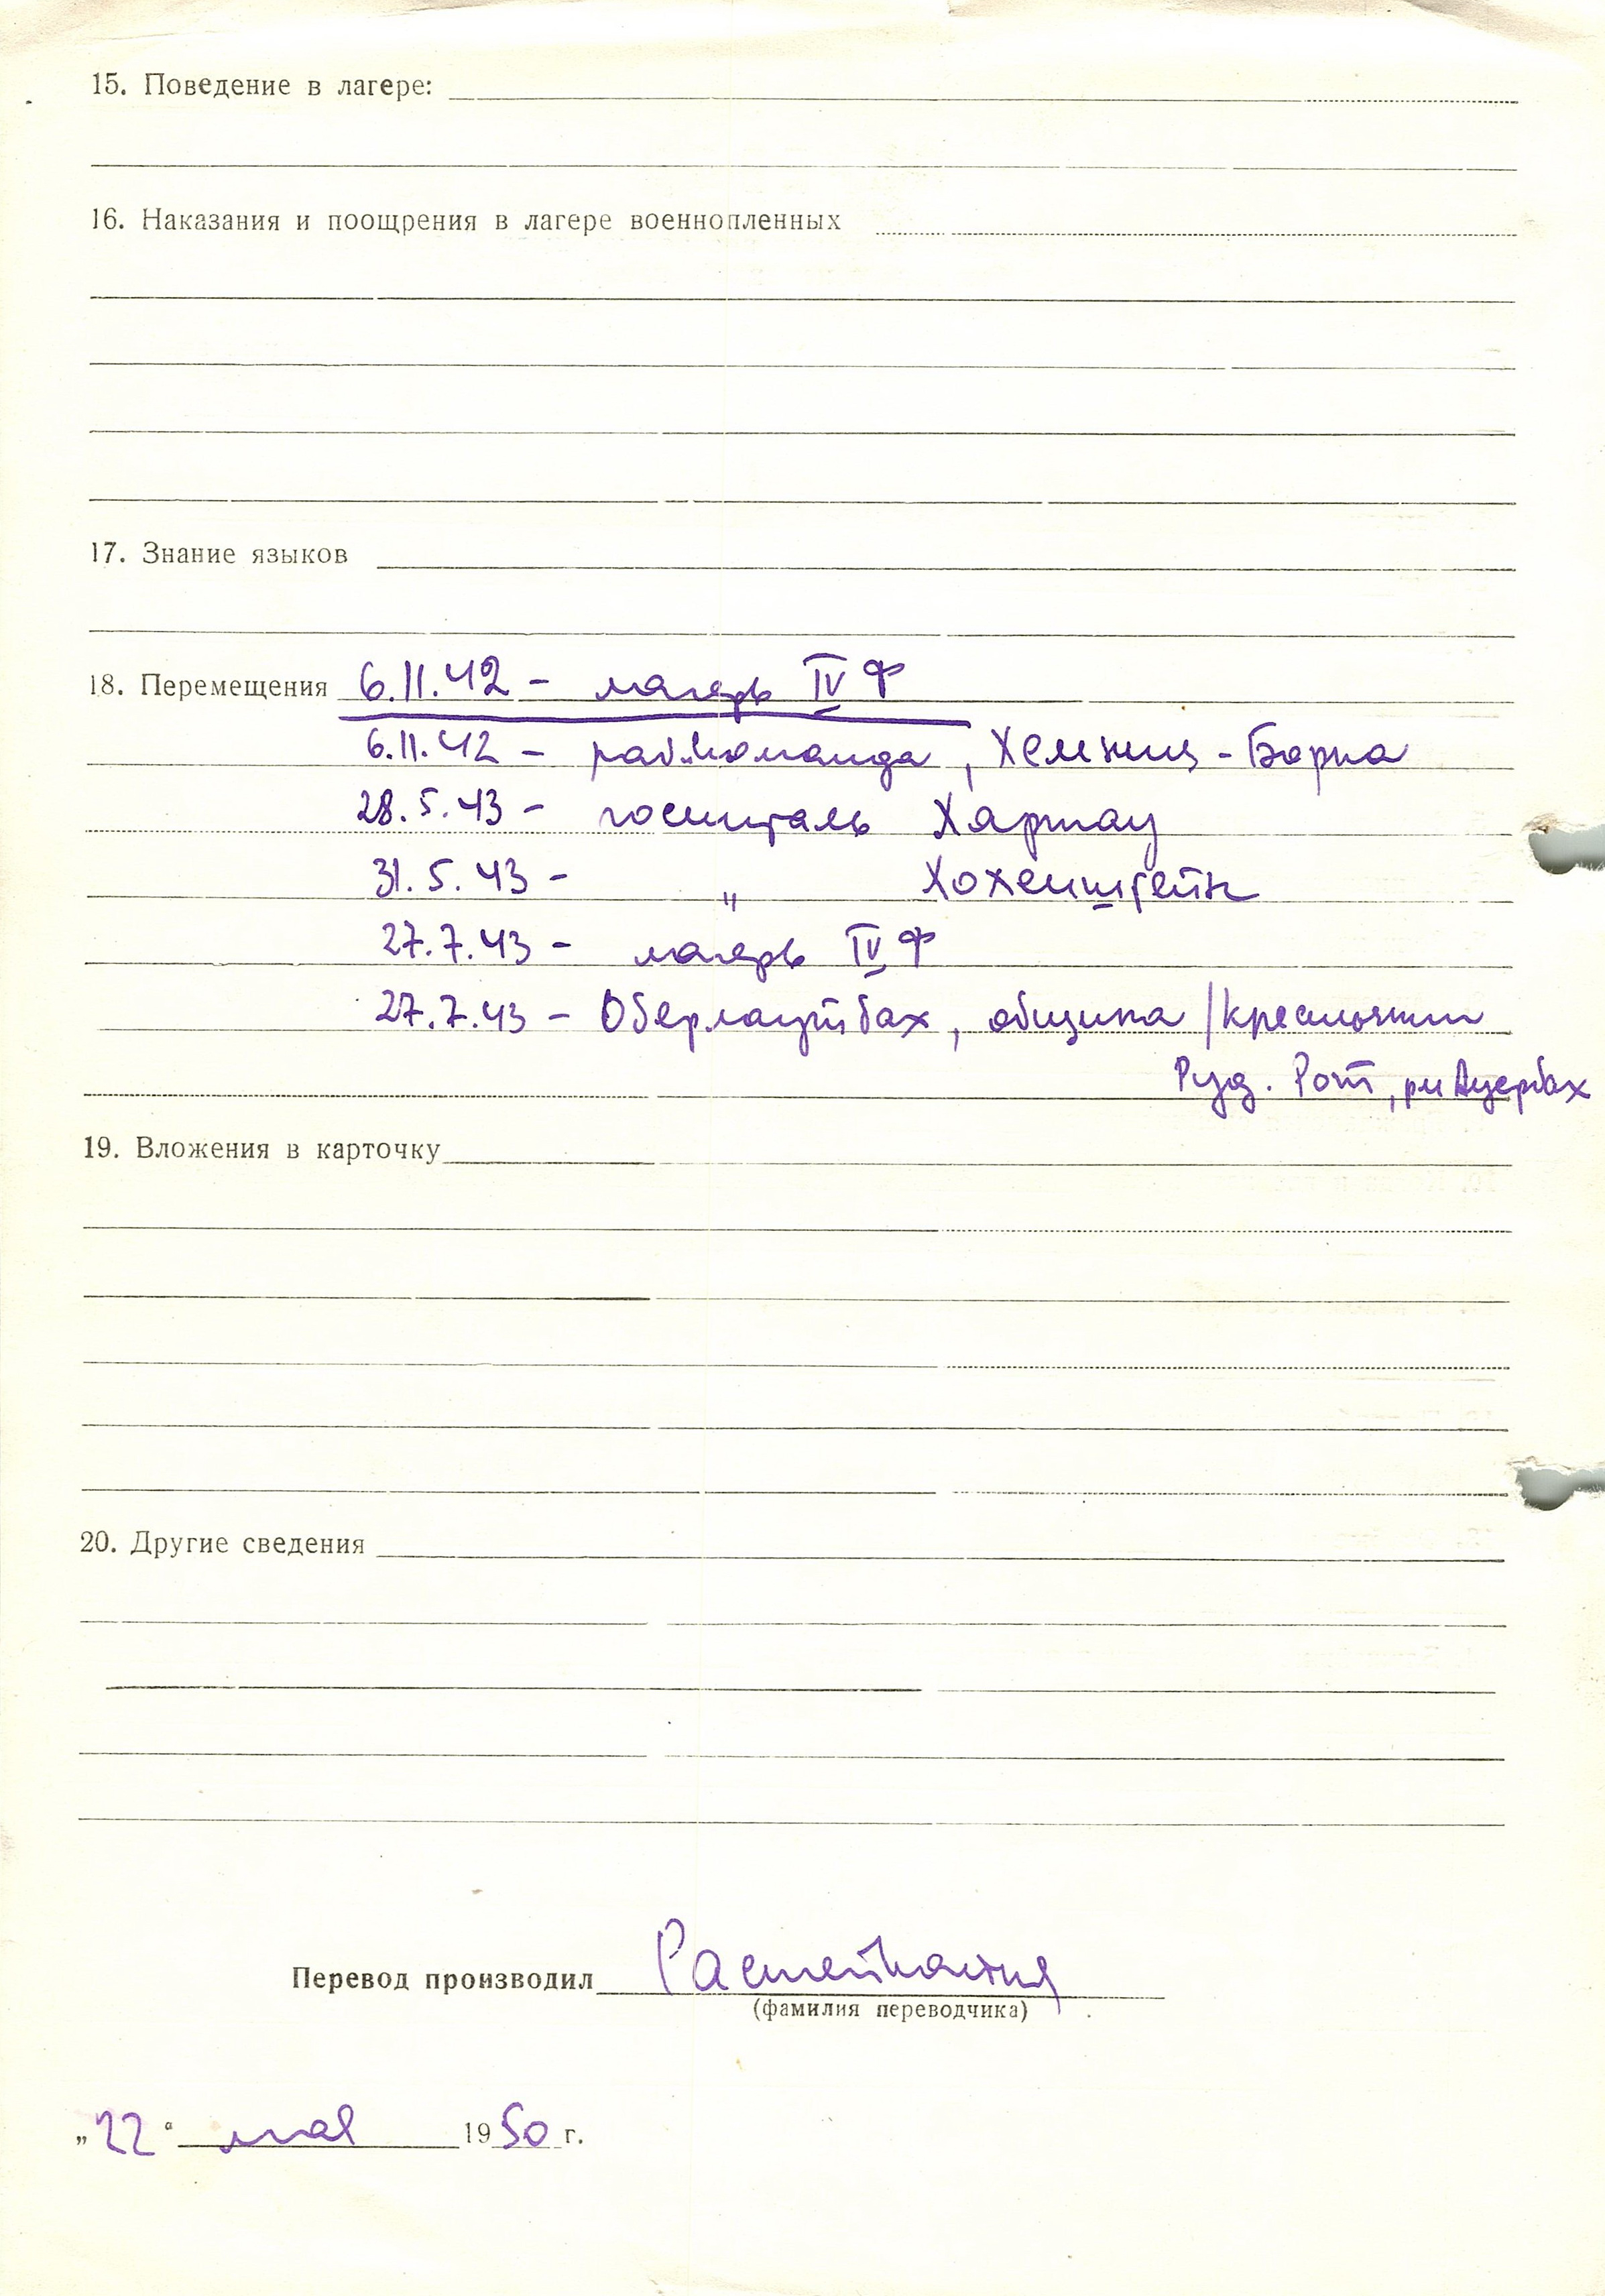 15. Поведение в лагере:
16. Наказания и поощрения в лагере военнопленных
17. Знание языков
18. Перемещения 6.11.42 - лагерь IV Ф
6.11.42 - раб.команда, Хемниц - Борна
28.5.43 - госпиталь Хартау
31.5.43 - " Хохенштейн
27.7.43 - лагерь IV Ф
27.7.43 - община / крестьянин
Руд. Рот, Ауербах
19. Вложения в карточку
20. Другие сведения
Перевод производил
(фамилия переводчика)
„22“ мая 1950 г.